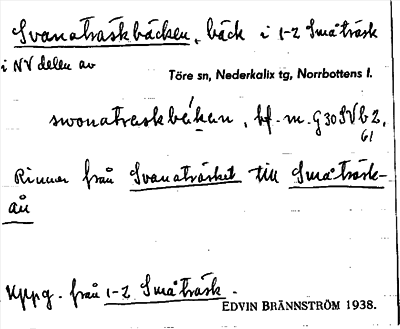 Svanaträskbäcken, bäck i 1-2 Småträsk
i NV delen av
Töre sn, Nederkalix tg, Norrbottens l.
swonatraskbäkan, kf. m. G30SVb2,
61
Rinner från Svanaträsket till Småträsk-
ån
Uppg. från 1-2 Småträsk.
EDVIN BRÄNNSTRÖM 1938.